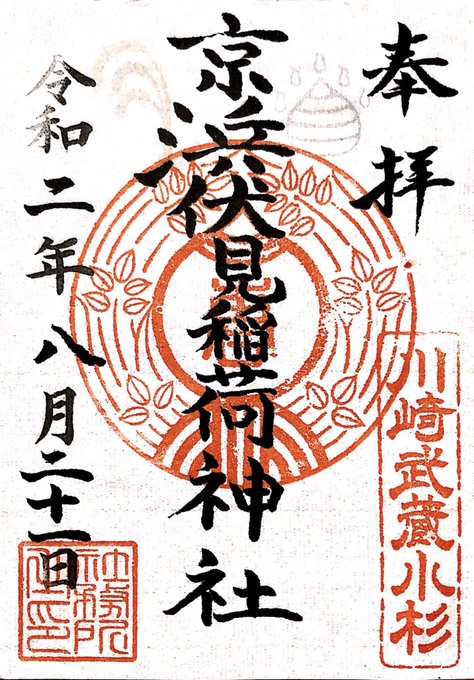 奉拝
川崎武蔵小杉
京浜伏見稲荷神社
令和二年八月二十一日
社務所之印